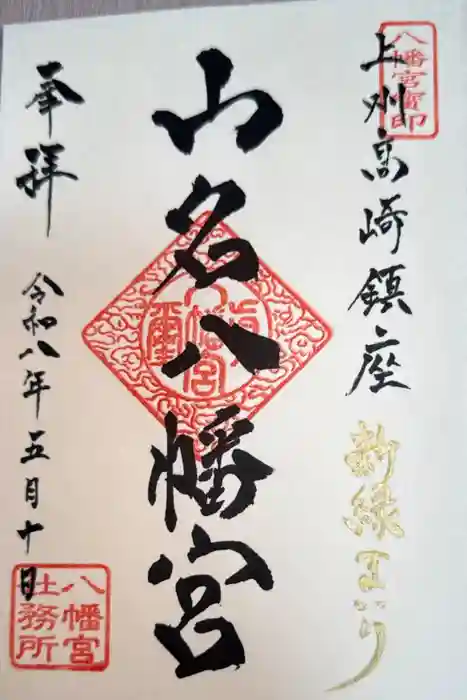 八幡宮寳印
上州高崎鎮座
新緑まいり
山名八幡宮
八幡宮
奉拝
令和八年五月十日
八幡宮社務所